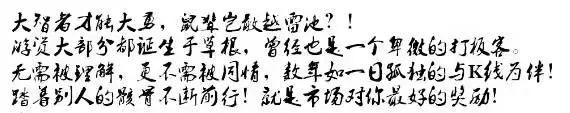 大智者才能大勇，鼠辈岂敢越雷池？！
游资大部分都诞生于草根，曾经也是一个卑微的打板客。
无需被理解，更不需被同情，数年如一日孤独的与K线为伴！
踏着别人的骸骨不断前行！就是市场对你最好的奖励！